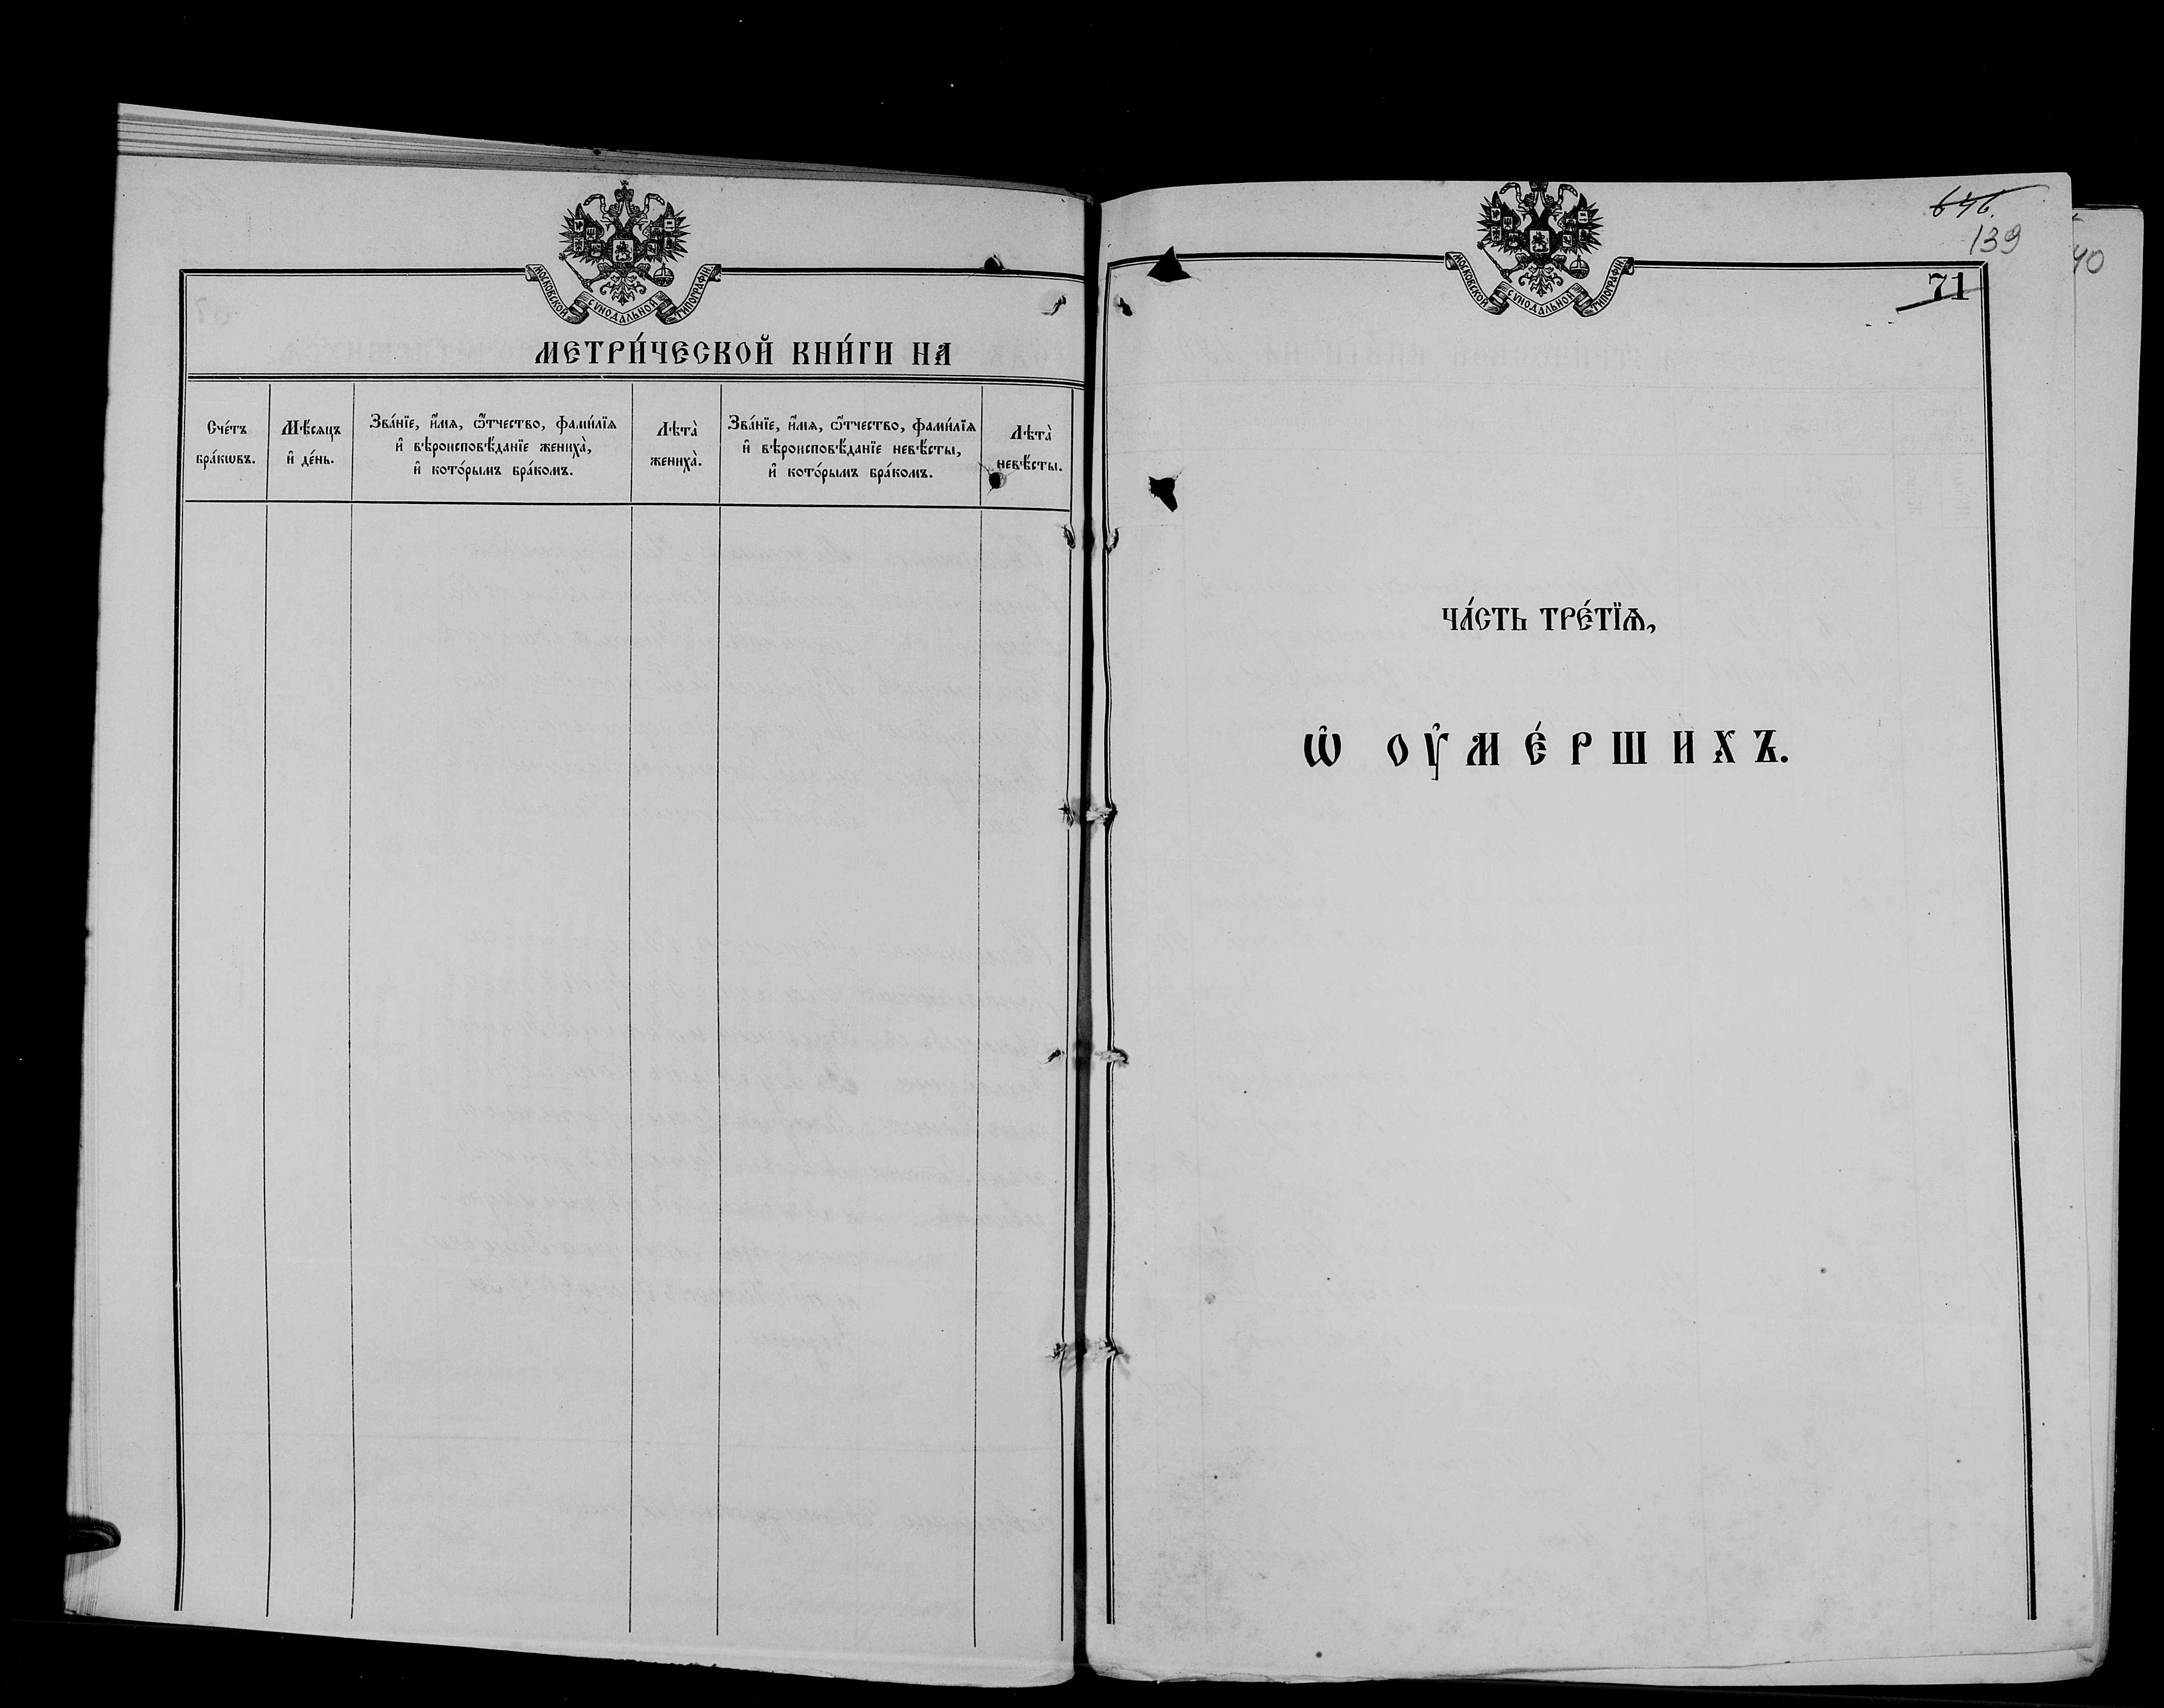 МОСКОВСКОЙ СѴНОДАЛЬНОЙ ТИПОГРАФІИ
МЕТРИ́ЧЕСКОЙ КНИ́ГИ НА
Сче́тъ
бра́кѡвъ.
Мѣ́сяцъ
и҆ де́нь.
Зва́нїе, и҆́мѧ, ѻ҆́тчество, фами́лїѧ
и҆ вѣроисповѣ́данїе жениха̀,
и҆ кото́рымъ бра́комъ.
Лѣта̀
жениха̀.
Зва́нїе, и҆́мѧ, ѻ҆́тчество, фами́лїѧ
и҆ вѣроисповѣ́данїе невѣ́сты,
и҆ кото́рымъ бра́комъ.
Лѣта̀
невѣ́сты.
646.
139
40
МОСКОВСКОЙ СѴНОДАЛЬНОЙ ТИПОГРАФІИ
71
ЧА́СТЬ ТРЕ́ТЇѦ,
Ѡ҆ ОУ҆МЕ́РШИХЪ.